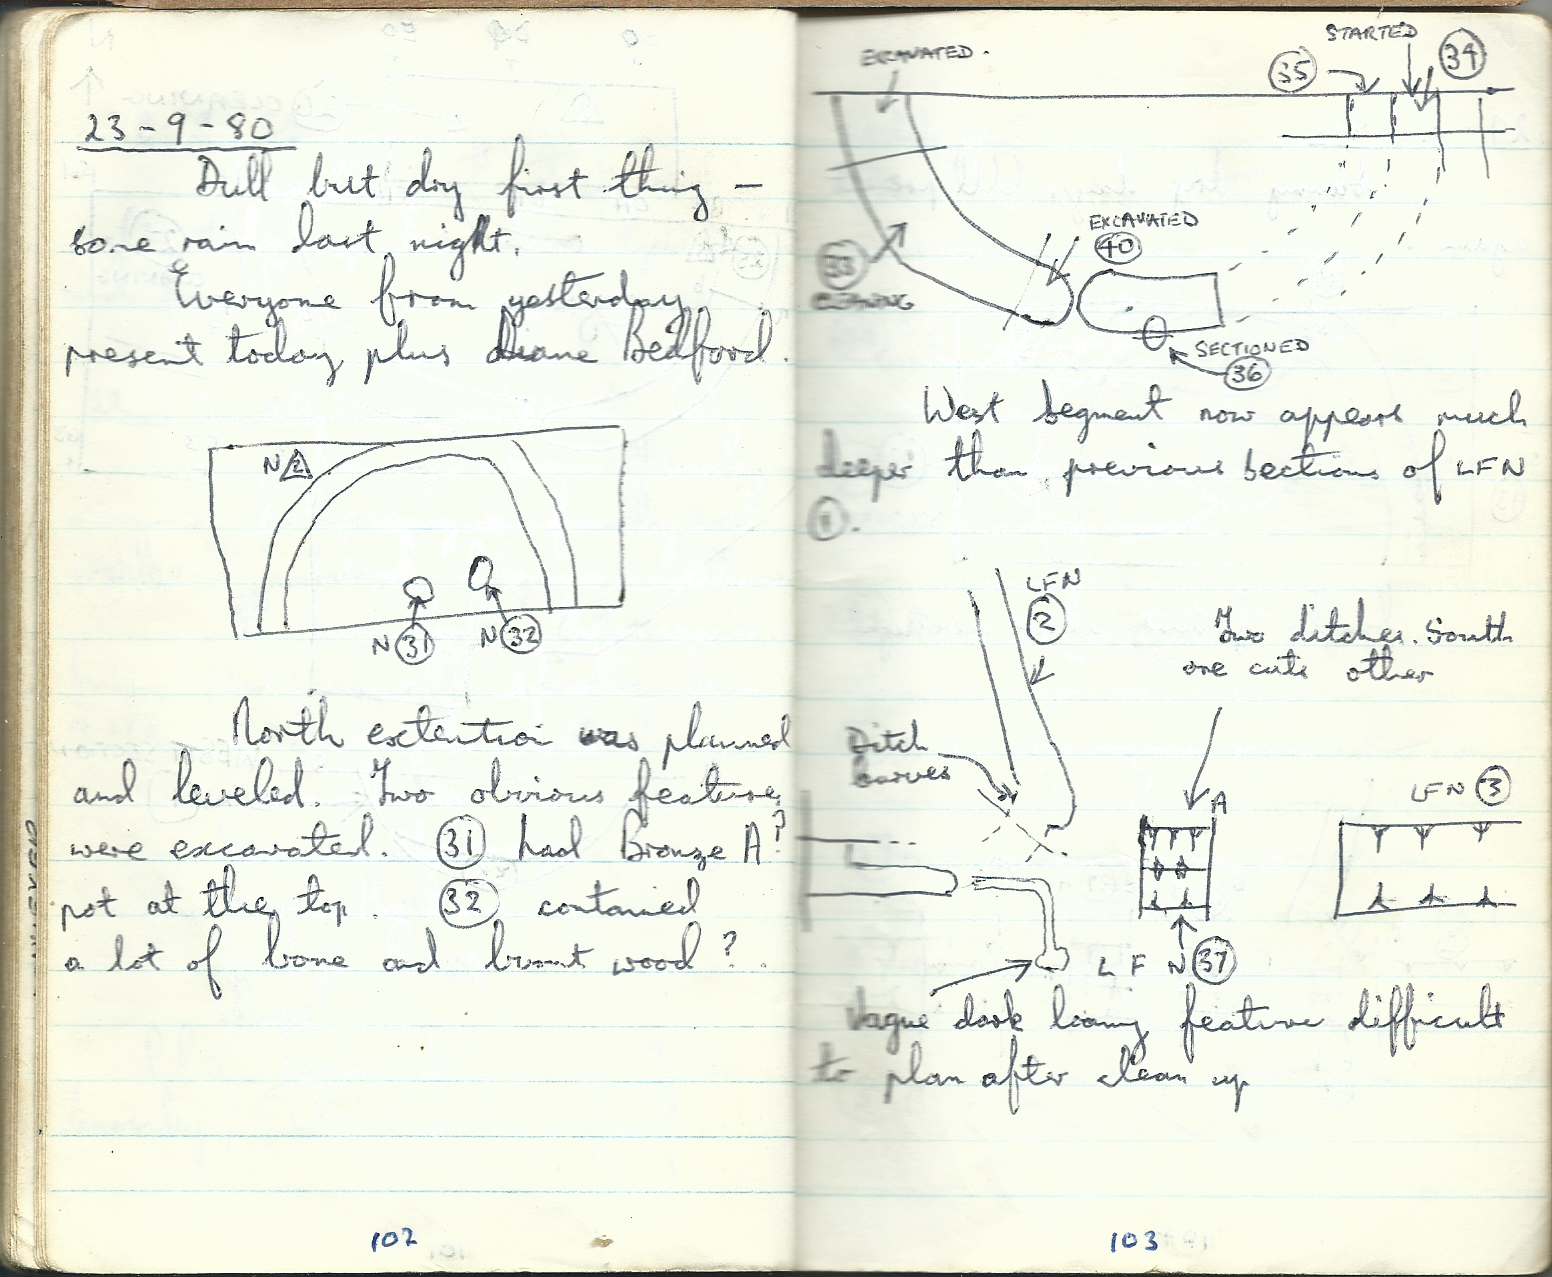 23-9-80
Dull but dry first thing –
some rain last night.
Everyone from yesterday
present today plus Diane Bedford.
N 2
N 31
N 32
North extention was planned
and leveled. Two obvious features
were excavated. 31 had Bronze A?
pot at the top. 32 contained
a lot of bone and burnt wood?
102
EXCAVATED.
STARTED
35
34
EXCAVATED
40
33
CLEANING
SECTIONED
36
West segment now appears much
deeper than previous sections of LFN
LFN
2
Two ditches. South
one cuts other
Ditch
curves
A
LFN 3
LFN 37
Vague dark loamy feature difficult
to plan after clean up
103